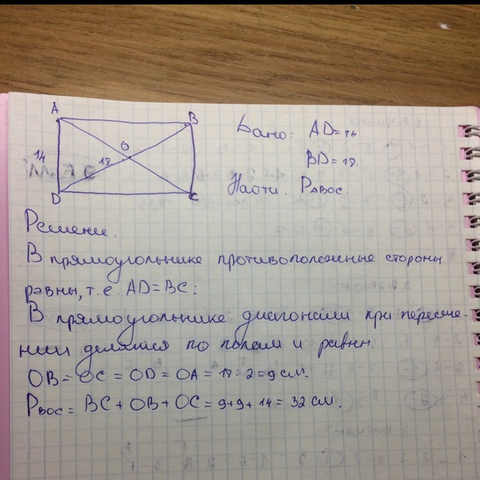 A
B
O
14
18
D
C
Дано: AD=14
BD=18.
Найти. Pвос.
Решение.
В прямоугольнике противоположные стороны
равны, т.е. AD=BC:
В прямоугольнике диагонали при пересече-
нии делятся по полам и равны.
OB=OC=OD=OA=18:2=9 см.
Pвос = BC+OB+OC=9+9+14=32 см.